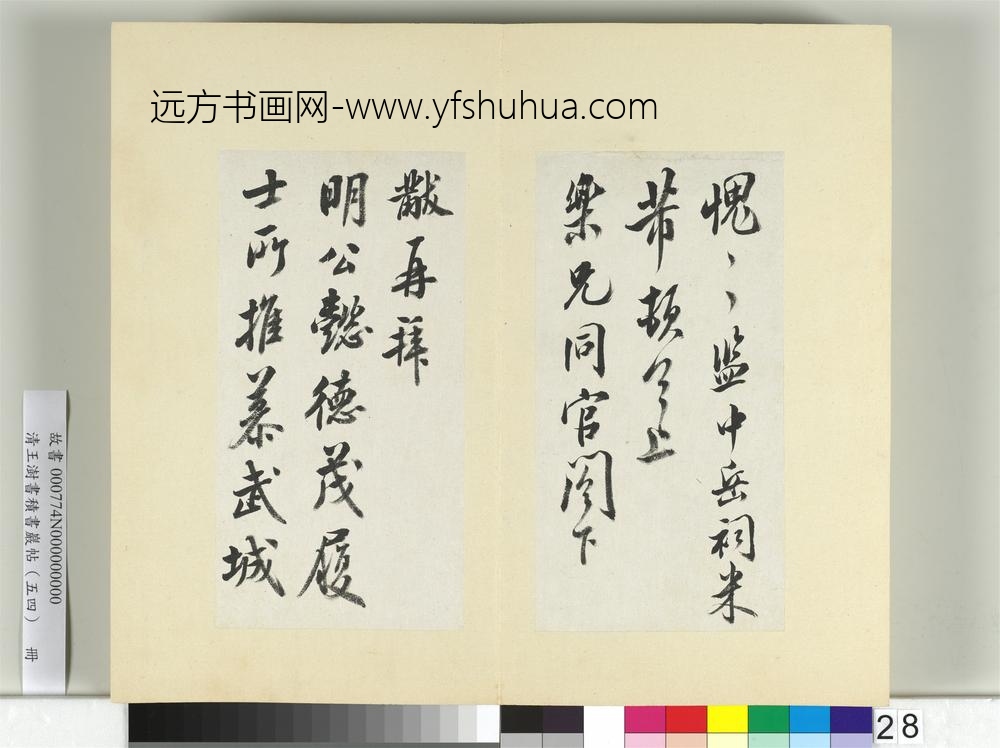 远方书画网-www.yfshuhua.com
愧〻監中岳祠米
芾頓首上
樂兄同官閣下
黻再拜
明公懿德茂履
士所推慕武城
故書 000774N000000000
清王澍書積書巖帖(五四) 冊
28